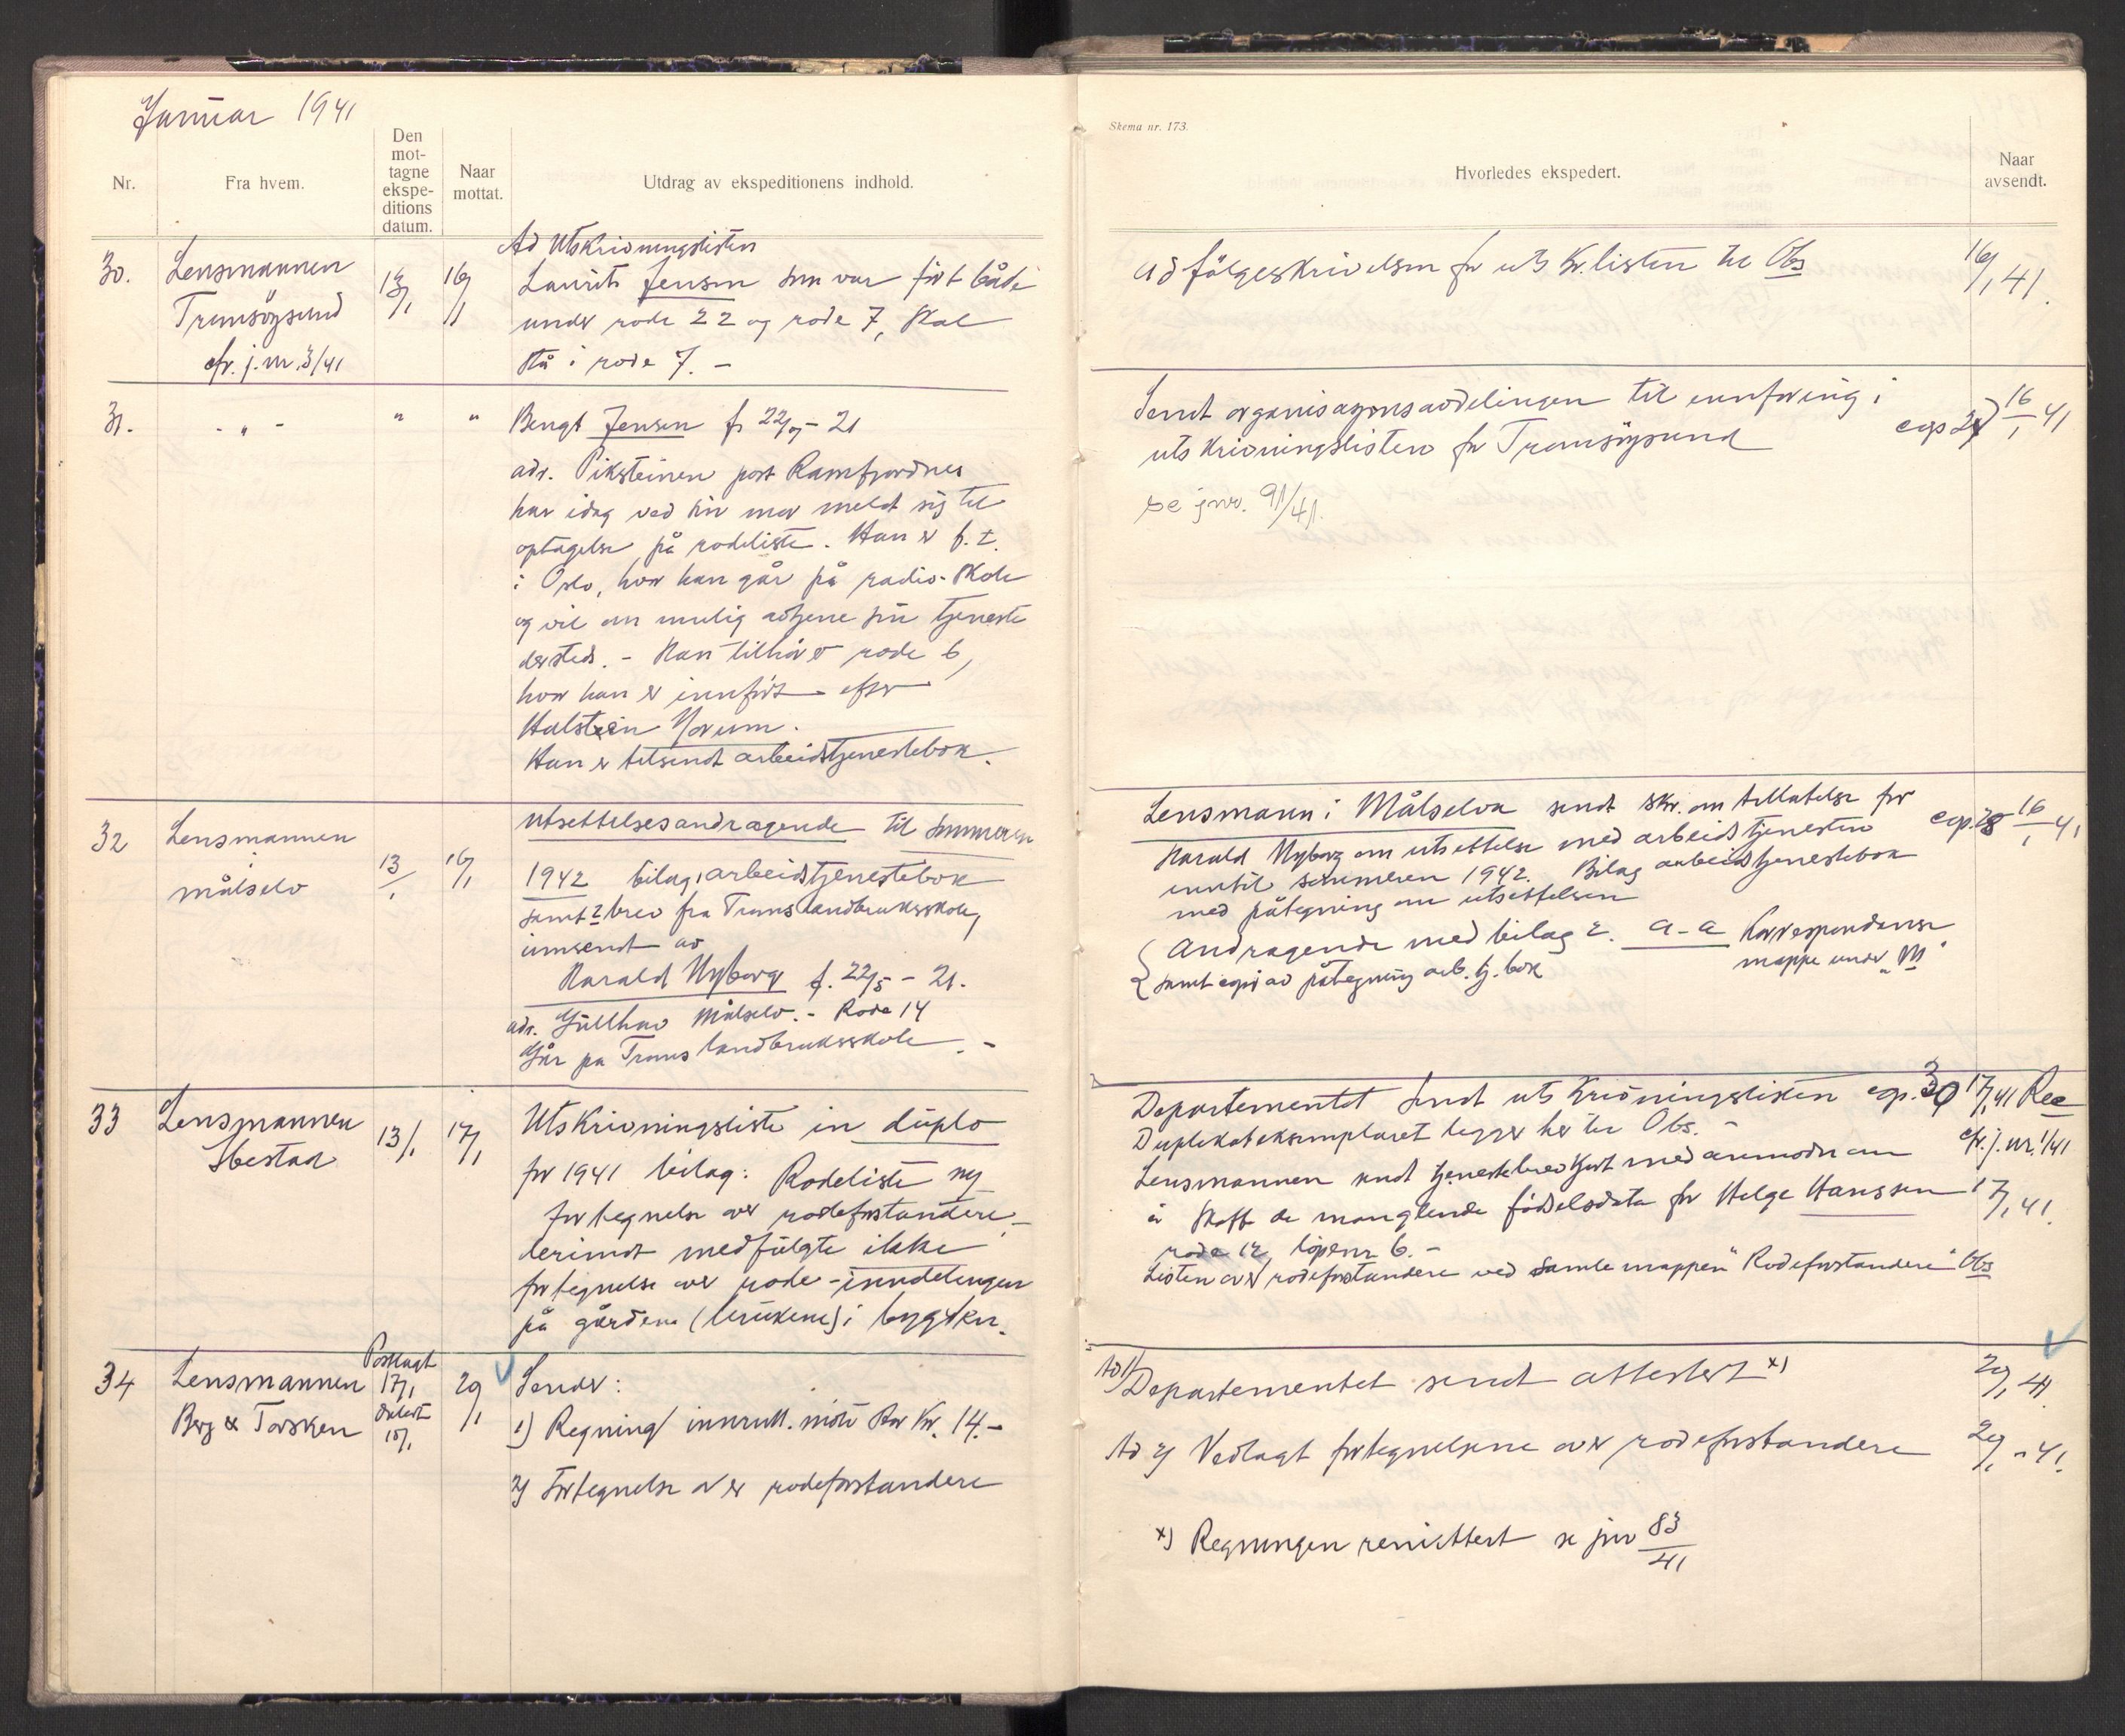 Januar 1941
Nr.
Fra hvem.
Den mot-
tagne
ekspe-
ditions
datum.
Naar
mottat.
Utdrag av ekspeditionens indhold.
30.
Lensmannen
Tromsöysund
cfr. j.nr. 3/41
13/1
16/1
Ad Utskrivningslisten
Laurits Jensen som var ført både
under rode 22 og rode 7, skal
stå i rode 7. -
31.
- " -
"
"
Bengt Jensen f. 22/9 - 21
adr. Piksteinen post Ramfjordnes
har idag ved sin mor meldt sig til
optagelse på rodeliste. Han er f.t.
i Oslo, hvor han går på radio-skole
og vil om mulig avtjene sin tjeneste
dersteds. - Han tilhører rode 6,
hvor han er innført efter
Halstein Norum.
Han er tilsendt arbeidstjenestebok.
32
Lensmannen
i
målselv
13/1
16/1
Utsettelsesandragende til sommeren
1942 bilag, arbeidstjenestebok
samt 2 brev fra Troms landbruksskole,
innsendt av
Harald Nyborg f. 22/5 - 21.
adr. Gullhav Målselv. - Rode 14
Går på Troms landbruksskole. -
33
Lensmannen
Ibestad
13/1
17/1
Utskrivningsliste in duplo
for 1941 bilag: Rodeliste ny
fortegnelse over rodeforstandere -
derimot medfulgte ikke
fortegnelse over rode-inndelingen
på gårdene (brukene) i bygden.
34
Lensmannen
Berg & Torsken
Postlagt
17/1
datert
15/1
20/1
Sender:
1) Regning innrull. møte stor kr. 14.-
2) Fortegnelse over rodeforstandere
Skema nr. 173.
Hvorledes ekspedert.
Naar
avsendt.
Ad følgeskrivelsen for utskr.listen til Obs
16/1 41.
Sendt organisasjonsavdelingen til innføring i
utskrivningslisten for Tromsöysund
cop 27) 16/1 41
se jnr. 91/41.
Lensmann i Målselva sendt skr. om tillatelse for
Harald Nyborg om utsettelse med arbeidstjenesten
inntil sommeren 1942. Bilag arbeidstjenestebok
med påtegning om utsettelsen
cop. 28 16/1 41
Andragende med bilag 2. a-a Korrespondanse
mappe under "M"
samt copi av påtegning arb. tj. bok
Departementet sendt utskrivningslisten cop. 30 17/1 41 Rec
Duplikateksemplaret ligger her til Obs. -
cfr. j. nr. 1/41
Lensmannen sendt tjenestebrevkort med anmodn om
å skaffe de manglende fødselsdata for Helge Hanssen
17/1 41.
rode 12, löpenr 6. -
Listen over rodeforstandere ved samle mappen "Rodeforstandere" Obs
Ad 1/ Departementet sendt attestert x)
20/1 41
Ad 2) Vedlagt fortegnelsene over rodeforstandere
20/1 - 41.
x) Regningen remittert se jnr 83/41